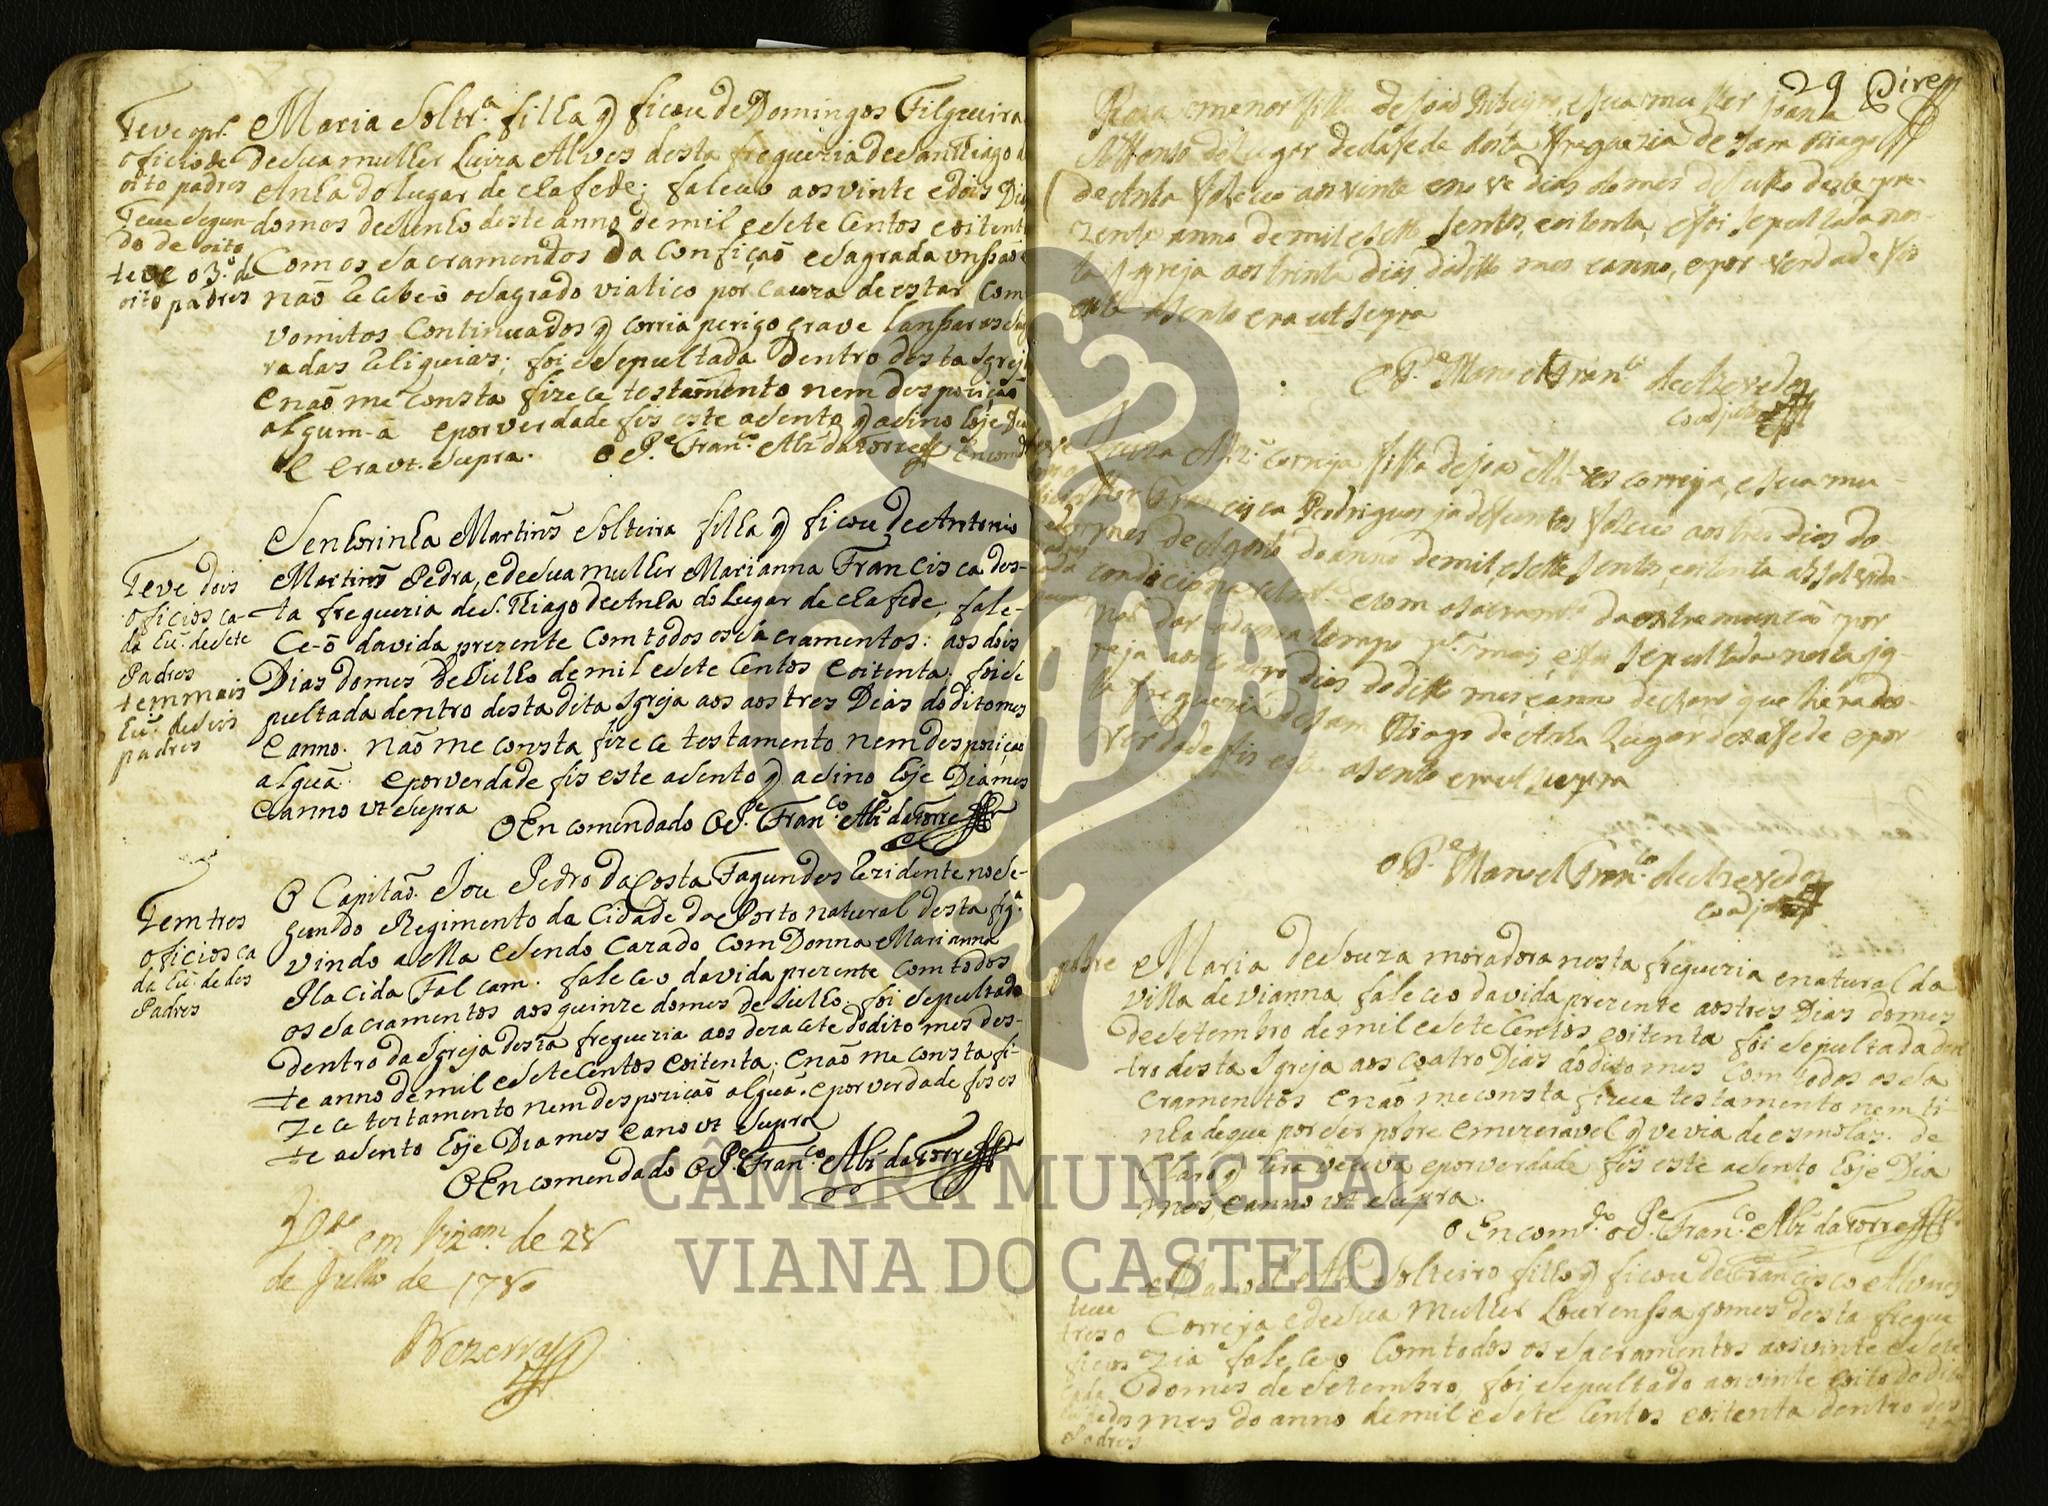 Teve pr.º
oficio de
oito padres
Teue segun
do de oito
teve o 3.º de
oito padres
Maria Soltr.ª filha q ficou de Domingos Filgueira
de sua mulher Luiza Alves desta freguezia de San Thiago d
Anha do lugar de Clafede; faleceo aos vinte e dois Di
do mes de Junho deste anno de mil e sete Centos e oitent
Com os Sacramentos da Confiçaõ e Sagrada
naõ Recebeo o Sagrado viatico por Cauza de estar Com
vomitos Continuados q corria perigo grave lansar as Sag
radas Reliquias; foi Sepultada Dentro desta Igrej
e naõ me Consta fizece testamento nem despoziçaõ
algum-a e por verdade fis este asento q asino hoje
era vt. Supra. o P.e Fran.co Alz da Torre Encom
Teve dois
oficios ca-
da hũ de sete
Padres
tem mais
hũ de seis
padres
Senhorinha Martins Solteira filha q ficou de Antonio
Martins Pedra, e de sua mulher Marianna Francisca des-
ta freguezia de S. Thiago de Anha do Lugar de Clafede, fale-
Ce-o da vida prezente Com todos os Sacramentos: aos dois
Dias do mes de Julho de mil e sete Centos e oitenta: foi se
pultada dentro desta dita Igreja aos aos tres Dias do dito mes
e anno. naõ me consta fizece testamento nem despoziçaõ
alguã. e por verdade fis este asento q asino hoje Dia mes
e anno vt Supra
O Encomendado O P.e Fran.co Alz da Torre
Tem tres
oficios ca
da hũ de des
Padres
O Capitaõ Joze Pedro da Costa Fagundes Rezidente no Se-
gundo Regimento da Cidade do Porto natural desta frg.ª
vindo a ella e sendo Cazado Com Donna Marianna
Placida Falcam. faleceo da vida prezente Com todos
os Sacramentos aos quinze do mes de Julho. foi Sepultado
dentro da Igreja desta freguezia aos dezacete do dito mes des-
te anno de mil e sete Centos e oitenta. e naõ me consta fi-
zece testamento nem despoziçaõ alguã. e por verdade fis es
te asento hoje Dia mes e ano vt Supra
O Encomendado O P.e Fran.co Alz da Torre
em Vizam de 28
de Julho de 1780
Bezerra
29
Roza menor filha de Joaõ Ribeyro, e sua mulher Joana
Affonso do Lugar de Clafede desta Freguezia de Sam Thiago
de Anha faleceo aos vinte e nove dias do mes de Julho deste pre-
zente anno de mil e sette sentos, e oitenta, e foi sepultada nes-
ta Igreja aos trinta dias do ditto mes e anno, e por verdade fis
este asento era ut supra
O P.e Manoel Fran.co de Azevedo
Coadjutor
Luiza Alz. correya filha de Joaõ Alves correya, e sua mu-
lher Francisca Rodrigues ja defuntos faleceo aos tres dias do
mes de Agosto do anno de mil, e sette sentos, e oitenta absolvida
condicionalm.te e com o sacram.to da extremunçaõ por
naõ dar tempo p.ª mais, e foi sepultada nesta Ig-
reja aos coatro dias do ditto mes, e anno declaro que hera des-
ta freguezia de Sam Thiago de Anha Lugar de Clafede e por
verdade fis este asento era ut supra
O P.e Manoel Fran.co de Azevedo
Coadjutor
pobre
Maria de Souza moradora nesta freguezia e natural da
villa de Vianna, faleceo da vida prezente aos tres Dias do mes
de Setembro de mil e sete Centos e oitenta foi sepultada den
tro desta Igreja aos coatro Dias do dito mes Com todos os Sa
cramentos e naõ me consta fizece testamento nem ti-
nha de que por ser pobre e mizeravel q vevia de esmolas. de
Claro q hera veuva e por verdade fis este asento hoje Dia
mes, e anno vt Supra.
O Encom.do o P.e Fran.co Alz da Torre
teue
tres o
ficios
Padres
Manoel Alz Solteiro filho q ficou de Francisco Alvares
Correya e de sua Mulher Lourensa gomes desta fregue
zia faleceo Com todos os Sacramentos aos vinte e sete
do mes de Setembro, foi Sepultado aos vinte e oito do dito
mes do anno de mil e sete Centos e oitenta dentro des
CÂMARA MUNICIPAL
VIANA DO CASTELO